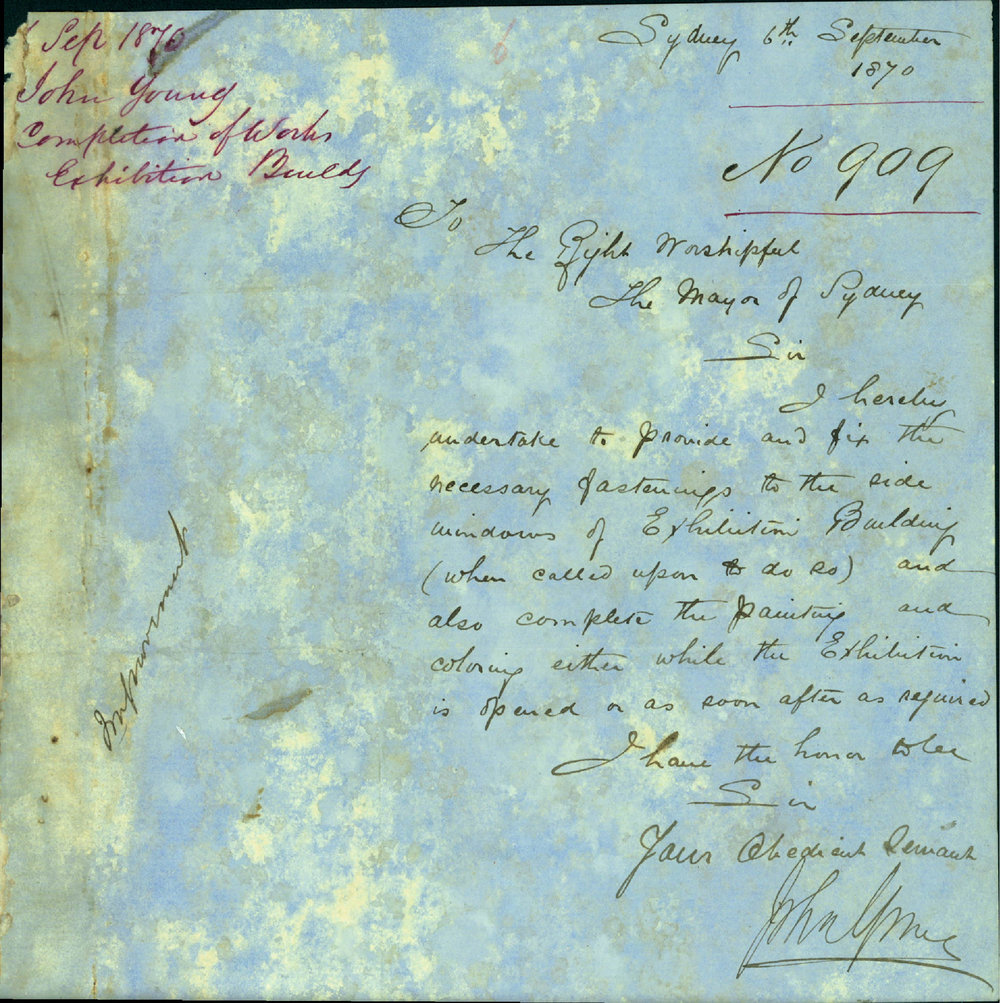 6 Sep 1870
John Young
Completion of Works
Exhibition Builds
6
Sydney 6th September
1870
No 909
To
The Right Worshipful
The Mayor of Sydney
Sir
I hereby
undertake to provide and fix the
necessary fastenings to the side
windows of Exhibition Building
(when called upon to do so) and
also complete the painting and
coloring either while the Exhibition
is opened or as soon after as required
I have the honor to be
Sir
Your Obedient Servant
John Young
Improvement